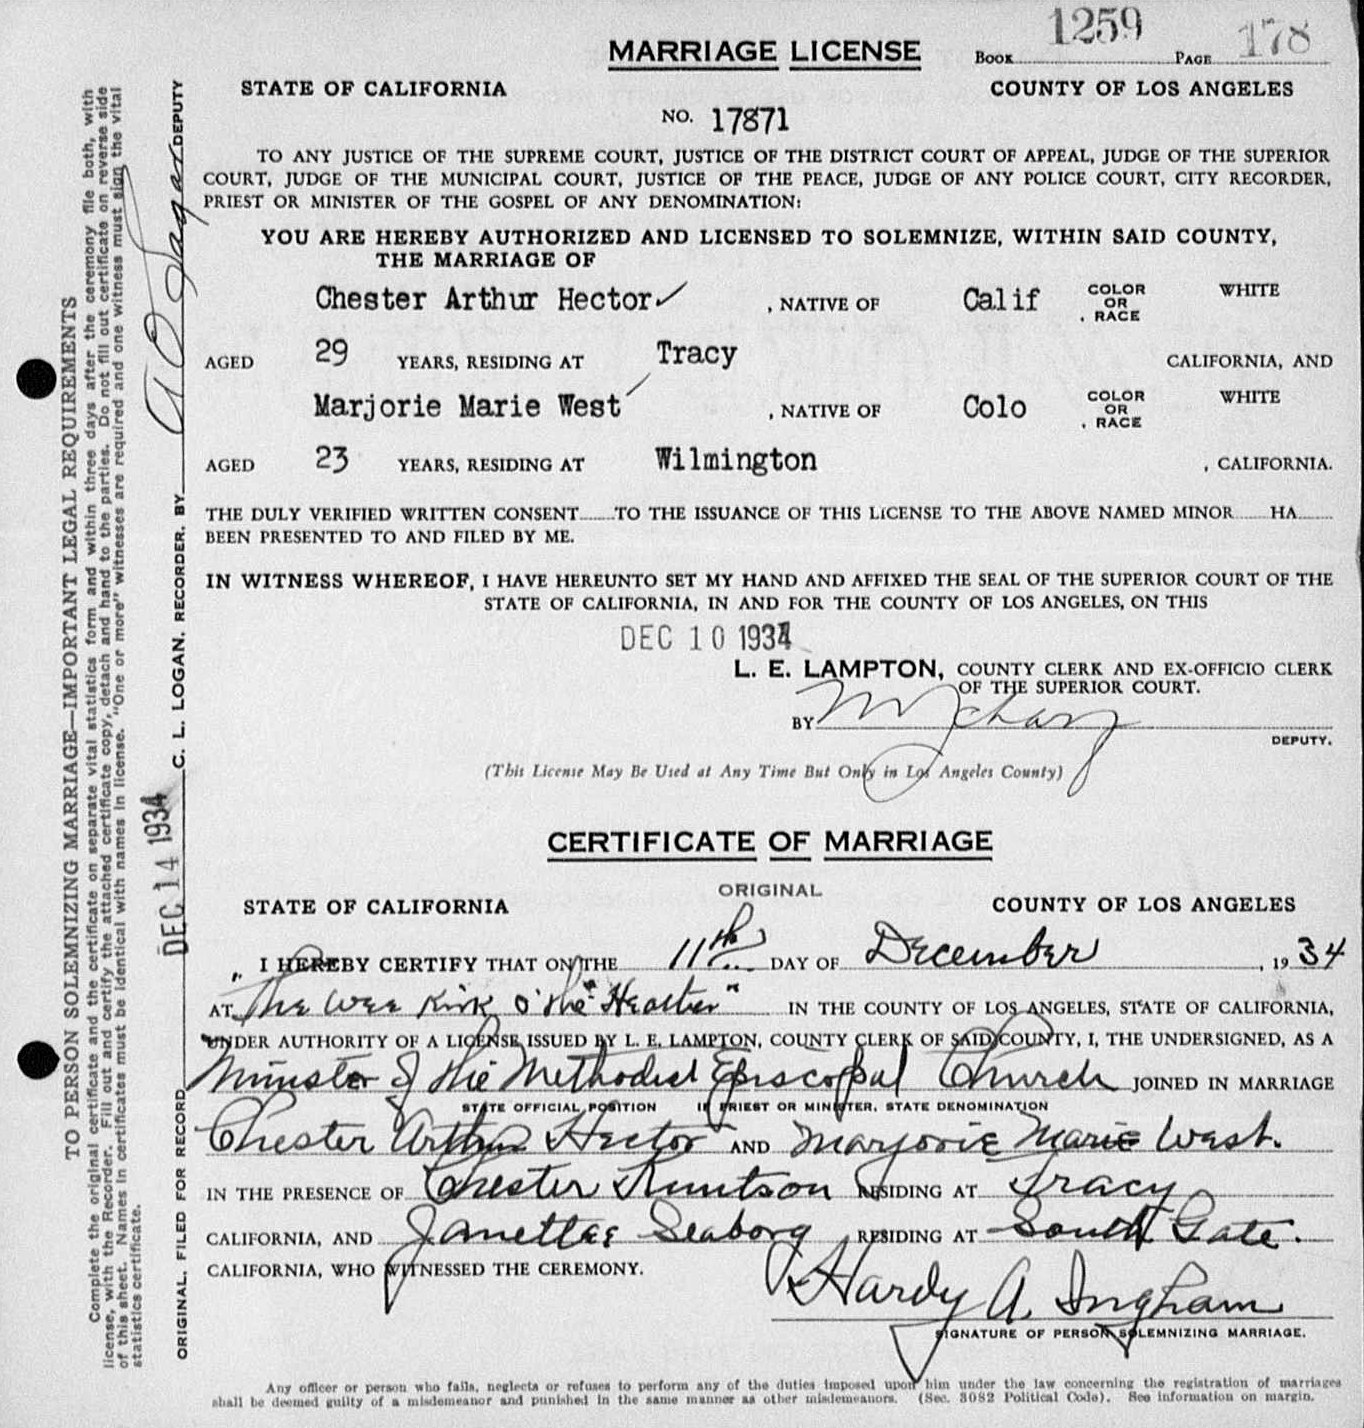 MARRIAGE LICENSE
BOOK 1259 PAGE 178
STATE OF CALIFORNIA COUNTY OF LOS ANGELES
NO. 17871
TO ANY JUSTICE OF THE SUPREME COURT, JUSTICE OF THE DISTRICT COURT OF APPEAL, JUDGE OF THE SUPERIOR
COURT, JUDGE OF THE MUNICIPAL COURT, JUSTICE OF THE PEACE, JUDGE OF ANY POLICE COURT, CITY RECORDER,
PRIEST OR MINISTER OF THE GOSPEL OF ANY DENOMINATION:
YOU ARE HEREBY AUTHORIZED AND LICENSED TO SOLEMNIZE, WITHIN SAID COUNTY,
THE MARRIAGE OF
Chester Arthur Hector✓, NATIVE OF Calif, COLOR OR RACE WHITE
AGED 29 YEARS, RESIDING AT Tracy CALIFORNIA, AND
Marjorie Marie West, NATIVE OF Colo, COLOR OR RACE WHITE
AGED 23 YEARS, RESIDING AT Wilmington, CALIFORNIA.
THE DULY VERIFIED WRITTEN CONSENT......TO THE ISSUANCE OF THIS LICENSE TO THE ABOVE NAMED MINOR......HA......
BEEN PRESENTED TO AND FILED BY ME.
IN WITNESS WHEREOF, I HAVE HEREUNTO SET MY HAND AND AFFIXED THE SEAL OF THE SUPERIOR COURT OF THE
STATE OF CALIFORNIA, IN AND FOR THE COUNTY OF LOS ANGELES, ON THIS
DEC 10 1934
L. E. LAMPTON, COUNTY CLERK AND EX-OFFICIO CLERK
OF THE SUPERIOR COURT.
BY
DEPUTY.
(This License May Be Used at Any Time But Only in Los Angeles County)
CERTIFICATE OF MARRIAGE
ORIGINAL
STATE OF CALIFORNIA COUNTY OF LOS ANGELES
I HEREBY CERTIFY THAT ON THE 11th DAY OF December, 1934
AT "The Wee Kirk o' the Heather" IN THE COUNTY OF LOS ANGELES, STATE OF CALIFORNIA,
UNDER AUTHORITY OF A LICENSE ISSUED BY L. E. LAMPTON, COUNTY CLERK OF SAID COUNTY, I, THE UNDERSIGNED, AS A
Minister of the Methodist Episcopal Church JOINED IN MARRIAGE
STATE OFFICIAL POSITION IF PRIEST OR MINISTER, STATE DENOMINATION
Chester Arthur Hector AND Marjorie Marie West.
IN THE PRESENCE OF Chester Knutson RESIDING AT Tracy
CALIFORNIA, AND Janettee Seaborg RESIDING AT South Gate.
CALIFORNIA, WHO WITNESSED THE CEREMONY.
Hardy A. Ingham
SIGNATURE OF PERSON SOLEMNIZING MARRIAGE.
Any officer or person who fails, neglects or refuses to perform any of the duties imposed upon him under the law concerning the registration of marriages
shall be deemed guilty of a misdemeanor and punished in the same manner as other misdemeanors. (Sec. 3082 Political Code). See information on margin.
TO PERSON SOLEMNIZING MARRIAGE—IMPORTANT LEGAL REQUIREMENTS
Complete the original certificate and the certificate on separate vital statistics form and within three days after the ceremony file both, with
license, with the Recorder. Fill out and certify the attached certificate copy, detach and hand to the parties. Do not fill out certificate on reverse side
of this sheet. Names in certificates must be identical with names in license. "One or more" witnesses are required and one witness must sign the vital
statistics certificate.
ORIGINAL, FILED FOR RECORD DEC 14 1934 C. L. LOGAN, RECORDER, BY DEPUTY